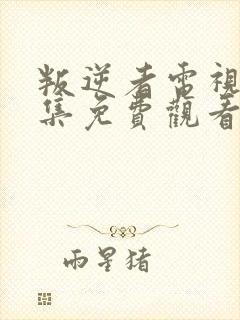 叛逆者電視
集免費觀看
雨星猪